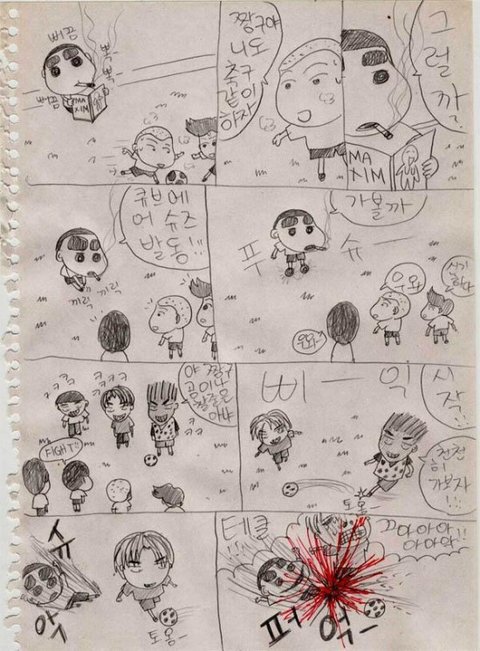 뻐끔
뻐끔
뻑
뻑
MA
XIM
짱구야
너도
축구
같이
하자
그럴
까
MA
XIM
큐브에
어 슈즈
발동!!
끼릭
끼릭
가볼까
푸
슈
우와
우와
신기
하다
ㅋㅋㅋ
ㅋㅋㅋ
야 짱구
공이나
ㅋㅋ
FIGHT!!
삐ー익
시
작
천천
히
가보자
!!!
토옹
슈
악
토옹
테클
!!!
끄아아아
아아악!!
퍼
억